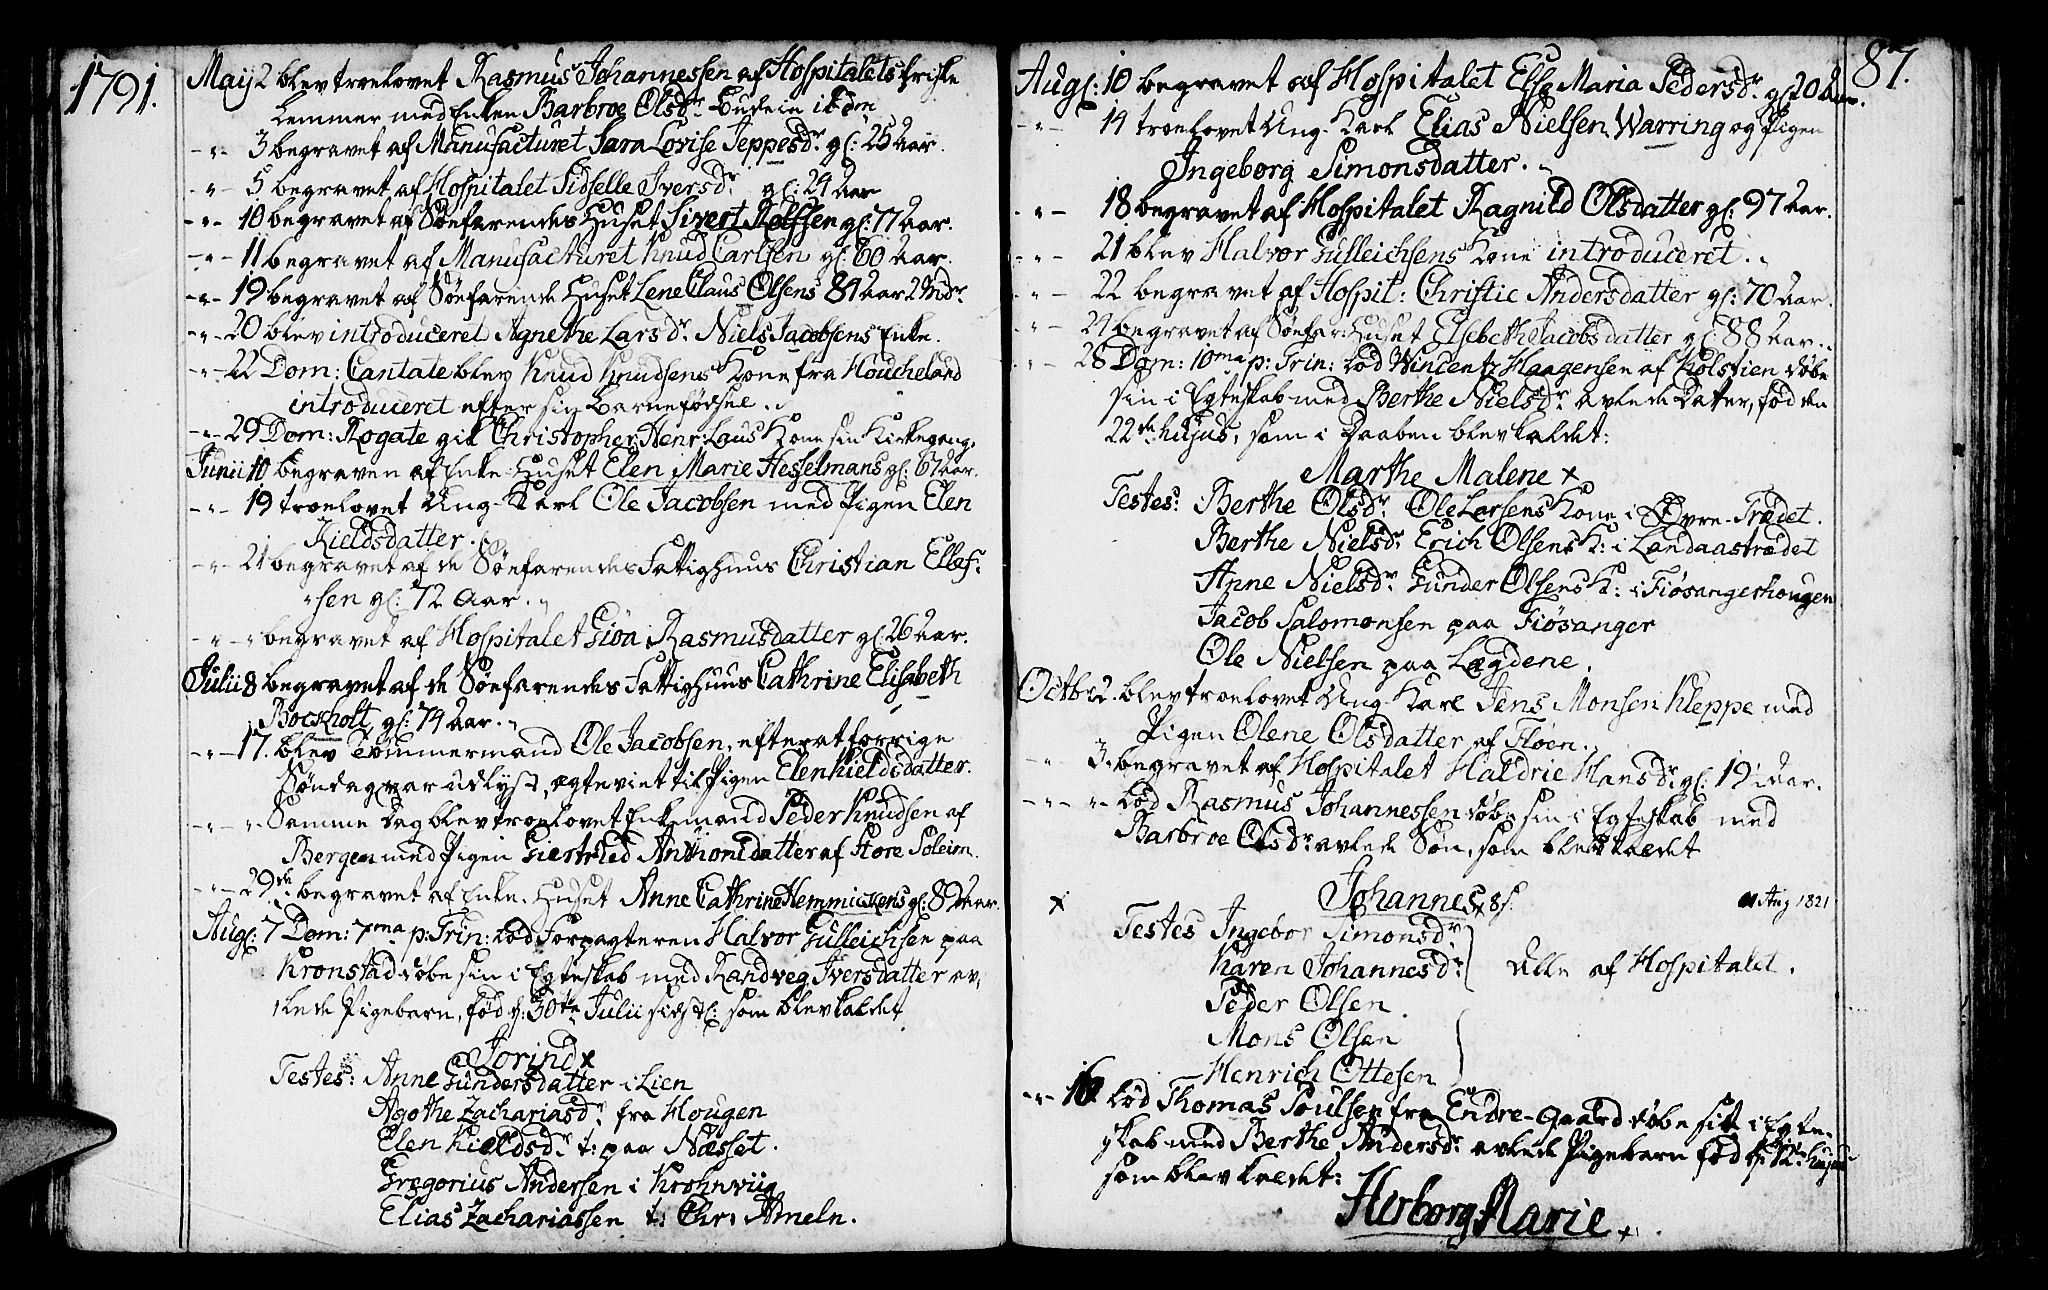 1791.
May 2 blev troelovet Rasmus Johannessen af Hospitalets friske
Lemmer med Enken Barbroe Olsdr. Budeie ibdm
-"- 3 begravet af Manufacturet Sara Lovise Jeppesdr. gl: 25 Aar.
-"- 5 begravet af Hospitalet Sidselle Iversdr. gl: 24 Aar
-"- 10 begravet af Søefarendes Huset Sivert Rolfsen gl: 77 Aar.
-"- 11 begravet af Manufacturet Knud Carlsen gl: 60 Aar.
-"- 19 begravet af Søefarende Huset Lene Claus Olsens 81 Aar 2 Mdr.
-"- 20 blev introduceret Agnethe Larsdr. Niels Jacobsens Enke.
-"- 22 Dom: Cantate blev Knud Knudsens Kone fra Houcheland
introduceret efter sin Barnefødsel.
-"- 29 Dom: Rogate gik Christopher Henr: Laus Kone sin Kirkegang.
Junii 10 begraven af Enke-Huset Elen Marie Hesselmans gl: 67 Aar.
-"- 19 troelovet Ung-Karl Ole Jacobsen med Pigen Elen
Kieldsdatter.
-"- 21 begravet af de Søefarendes Fattighuus Christian Ellef-
sen gl: 72 Aar.
-"- " begravet af Hospitalet Giøa Rasmusdatter gl: 26 Aar.
Julii 8 begravet af de Søefarendes Fattighuus Cathrine Elisabeth
Bockholt gl: 74 Aar.
-"- 17. blev Tømmermand Ole Jacobsen, efter at forrige
Søndag var udlyst, ægteviet til Pigen Elen Kieldsdatter.
-"- " Samme Dag blev troelovet Enkemand Peder Knudsen af
Bergen med Pigen Giertrud Anthonidatter af Store Soleim.
-"- 29de begravet af Enke-Huset Anne Cathrine Hemmickens gl: 82 Aar.
Augs: 7 Dom: 7ma p: Trin: lod Forpagteren Halvor Gulleichsen paa
Kronstad døbe sin i Egteskab med Randveg Iversdatter av-
lede Pigebarn, fød d: 30te Julii sidstl: som blev kaldet
Jorind x
Testes: Anne Gundersdatter i Lien
Agothe Zachariasdr. fra Hougen
Elen Kieldsdr. t: paa Næsset.
Gregorius Andersen i Krohnviig
Elias Zachariassen t: Chr: Ameln.
87.
Augs: 10 begravet af Hospitalet Else Maria Pedersdr. gl: 20 Aar.
-"- 14 troelovet Ung-Karl Elias Nielsen Warring og Pigen
Ingeborg Simonsdatter.
-"- 18 begravet af Hospitalet Ragnild Olsdatter gl: 97 Aar.
-"- 21 blev Halvor Gulleichsens Kone introduceret.
-"- 22 begravet af Hospit: Christie Andersdatter gl: 70 Aar.
-"- 24 begravet af Søefar: Huset Elsebeth Jacobsdatter gl: 88 Aar.
-"- 28 Dom: 10ma p: Trin: lod Wincentz Haagensen af Kolstien døbe
sin i Egteskab med Berthe Nielsdr. avlede Datter, fød den
22de hujus, som i Daaben blev kaldet:
Marthe Malene x
Testes: Berthe Olsdr. Ole Larsens Kone i Øvre-Trædet.
Berthe Nielsdr. Erich Olsens K: i Landaastrædet
Anne Nielsdr. Gunder Olsens K: i Fiøsangerhougen
Jacob Salomonsen paa Fiøsanger
Ole Nielsen paa Lægdene.
Octbr 2. blev troelovet Ung-Karl Jens Monsen Kleppe med
Pigen Olene Olsdatter af Fløen.
-"- 3. begravet af Hospitalet Haldrie Hansdr. gl: 19 Aar.
-"- " lod Rasmus Johannessen døbe sin i Egteskab med
Barbroe Olsdr. avlede Søn, som blev kaldet
x Johannes. Aug 1821
Testes Ingebor Simonsdr.
Karen Johannesdr. Alle af Hospitalet.
Peder Olsen
Mons Olsen
Henrich Ottesen
-"- 16 lod Thomas Poulsen fra Endre-Gaard døbe sit i Egte-
skab med Berthe Andersdr. avlede Pigebarn fød d: 12te hujus
som blev kaldet:
Herborg Marie x.